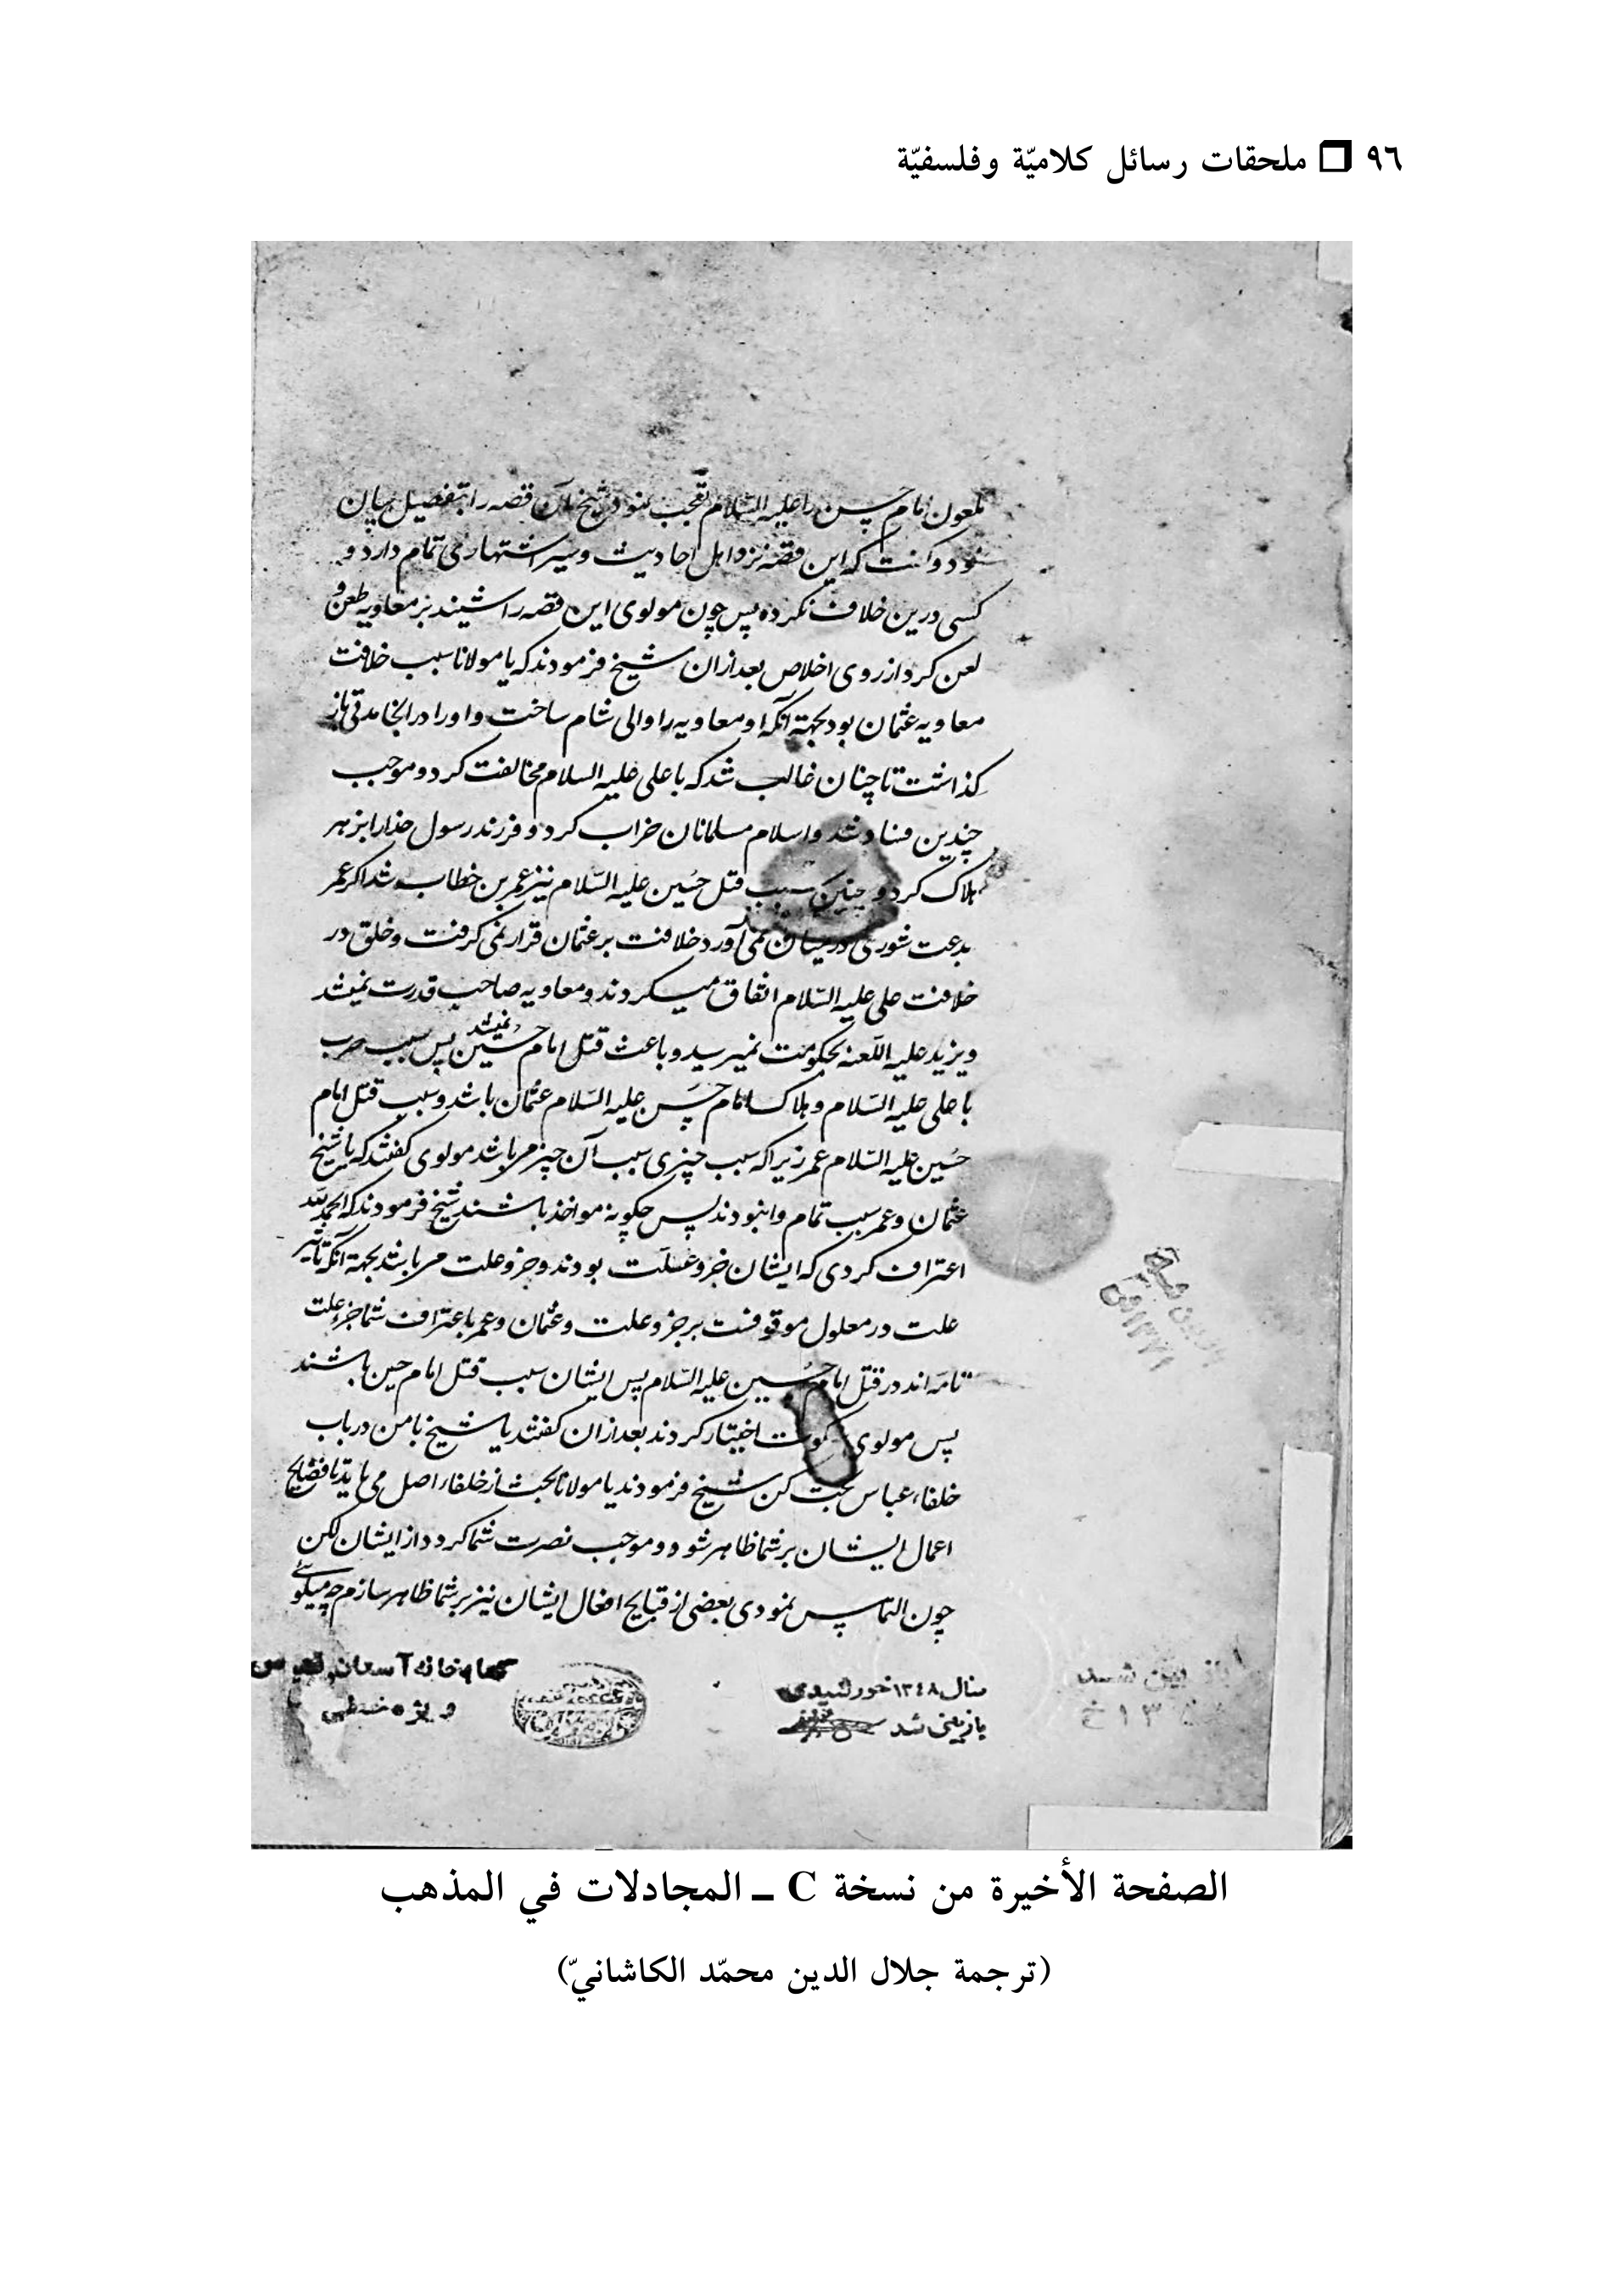 ٩٦ ❒ ملحقات رسائل كلاميّة وفلسفيّة
ملعون امام حسن را عليه السّلام تعجب نمود شيخ آن قصه را بتفصيل بيان
نمود و كفت كه اين قصه نزد اهل احاديث و سير اشتهارى تمام دارد و
كسى درين خلاف نكرده پس چون مولوى اين قصه را شنيد بر معاويه طعن و
لعن كرد از روى اخلاص بعد ازان شيخ فرمودند كه يا مولانا سبب خلافت
معاويه عثمان بود بجهة آنكه او معاويه را والى شام ساخت و او را در انجا مدتى باز
كذاشت تا چنان غالب شد كه با على عليه السلام مخالفت كرد و موجب
چندين فساد شد و اسلام مسلمانان خراب كرد و فرزند رسول خدا را بزهر
هلاك كرد و چنين سبب قتل حُسين عليه السّلام نيز عمر بن خطاب شد اكر عمر
بدعت شورى در ميان نمى آورد خلافت بر عثمان قرار نمى كرفت و خلق در
خلافت على عليه السّلام اتفاق ميكردند و معاويه صاحب قدرت نميشد
و يزيد عليه اللّعنه بحكومت نميرسيد و باعث قتل امام حسين نميشد پس سبب حرب
با على عليه السّلام و هلاك امام حسن عليه السّلام عثمان باشد و سبب قتل امام
حُسين عليه السّلام عمر زيرا كه سبب سبب چيزى سبب آن چيز مى باشد مولوى كفتند كه يا شيخ
عثمان و عمر سبب تمام وا نبودند پس چكونه مواخذ باشند شيخ فرمودند كه الحمد للّه
اعتراف كردى كه ايشان جزو علت بودند و جزو علت مى يابند بجهة آنكه تاثير
علت در معلول موقوفست بر جزو علت و عثمان و عمر باعتراف شما جزء علت
تامّه اند در قتل امام حُسين عليه السّلام پس ايشان سبب قتل امام حسين باشند
پس مولوى سكوت اختيار كردند بعد ازان كفتند يا شيخ با من در باب
خلفاء عباس بحث كن شيخ فرمودند يا مولانا بحث از خلفاء اصل مى بايد تا فضايح
اعمال ايشان بر شما ظاهر شود و موجب نصرت شما كردد از ايشان لكن
چون التماس نمودى بعضى از قبايح افعال ايشان نيز بر شما ظاهر سازم چه ميكوئى
بازبين شد
سال ١٣٤٨ خورشيدى
بازبينى شد
كتابخانه آستان قدس
الصفحة الأخيرة من نسخة C ــ المجادلات في المذهب
(ترجمة جلال الدين محمّد الكاشانيّ)